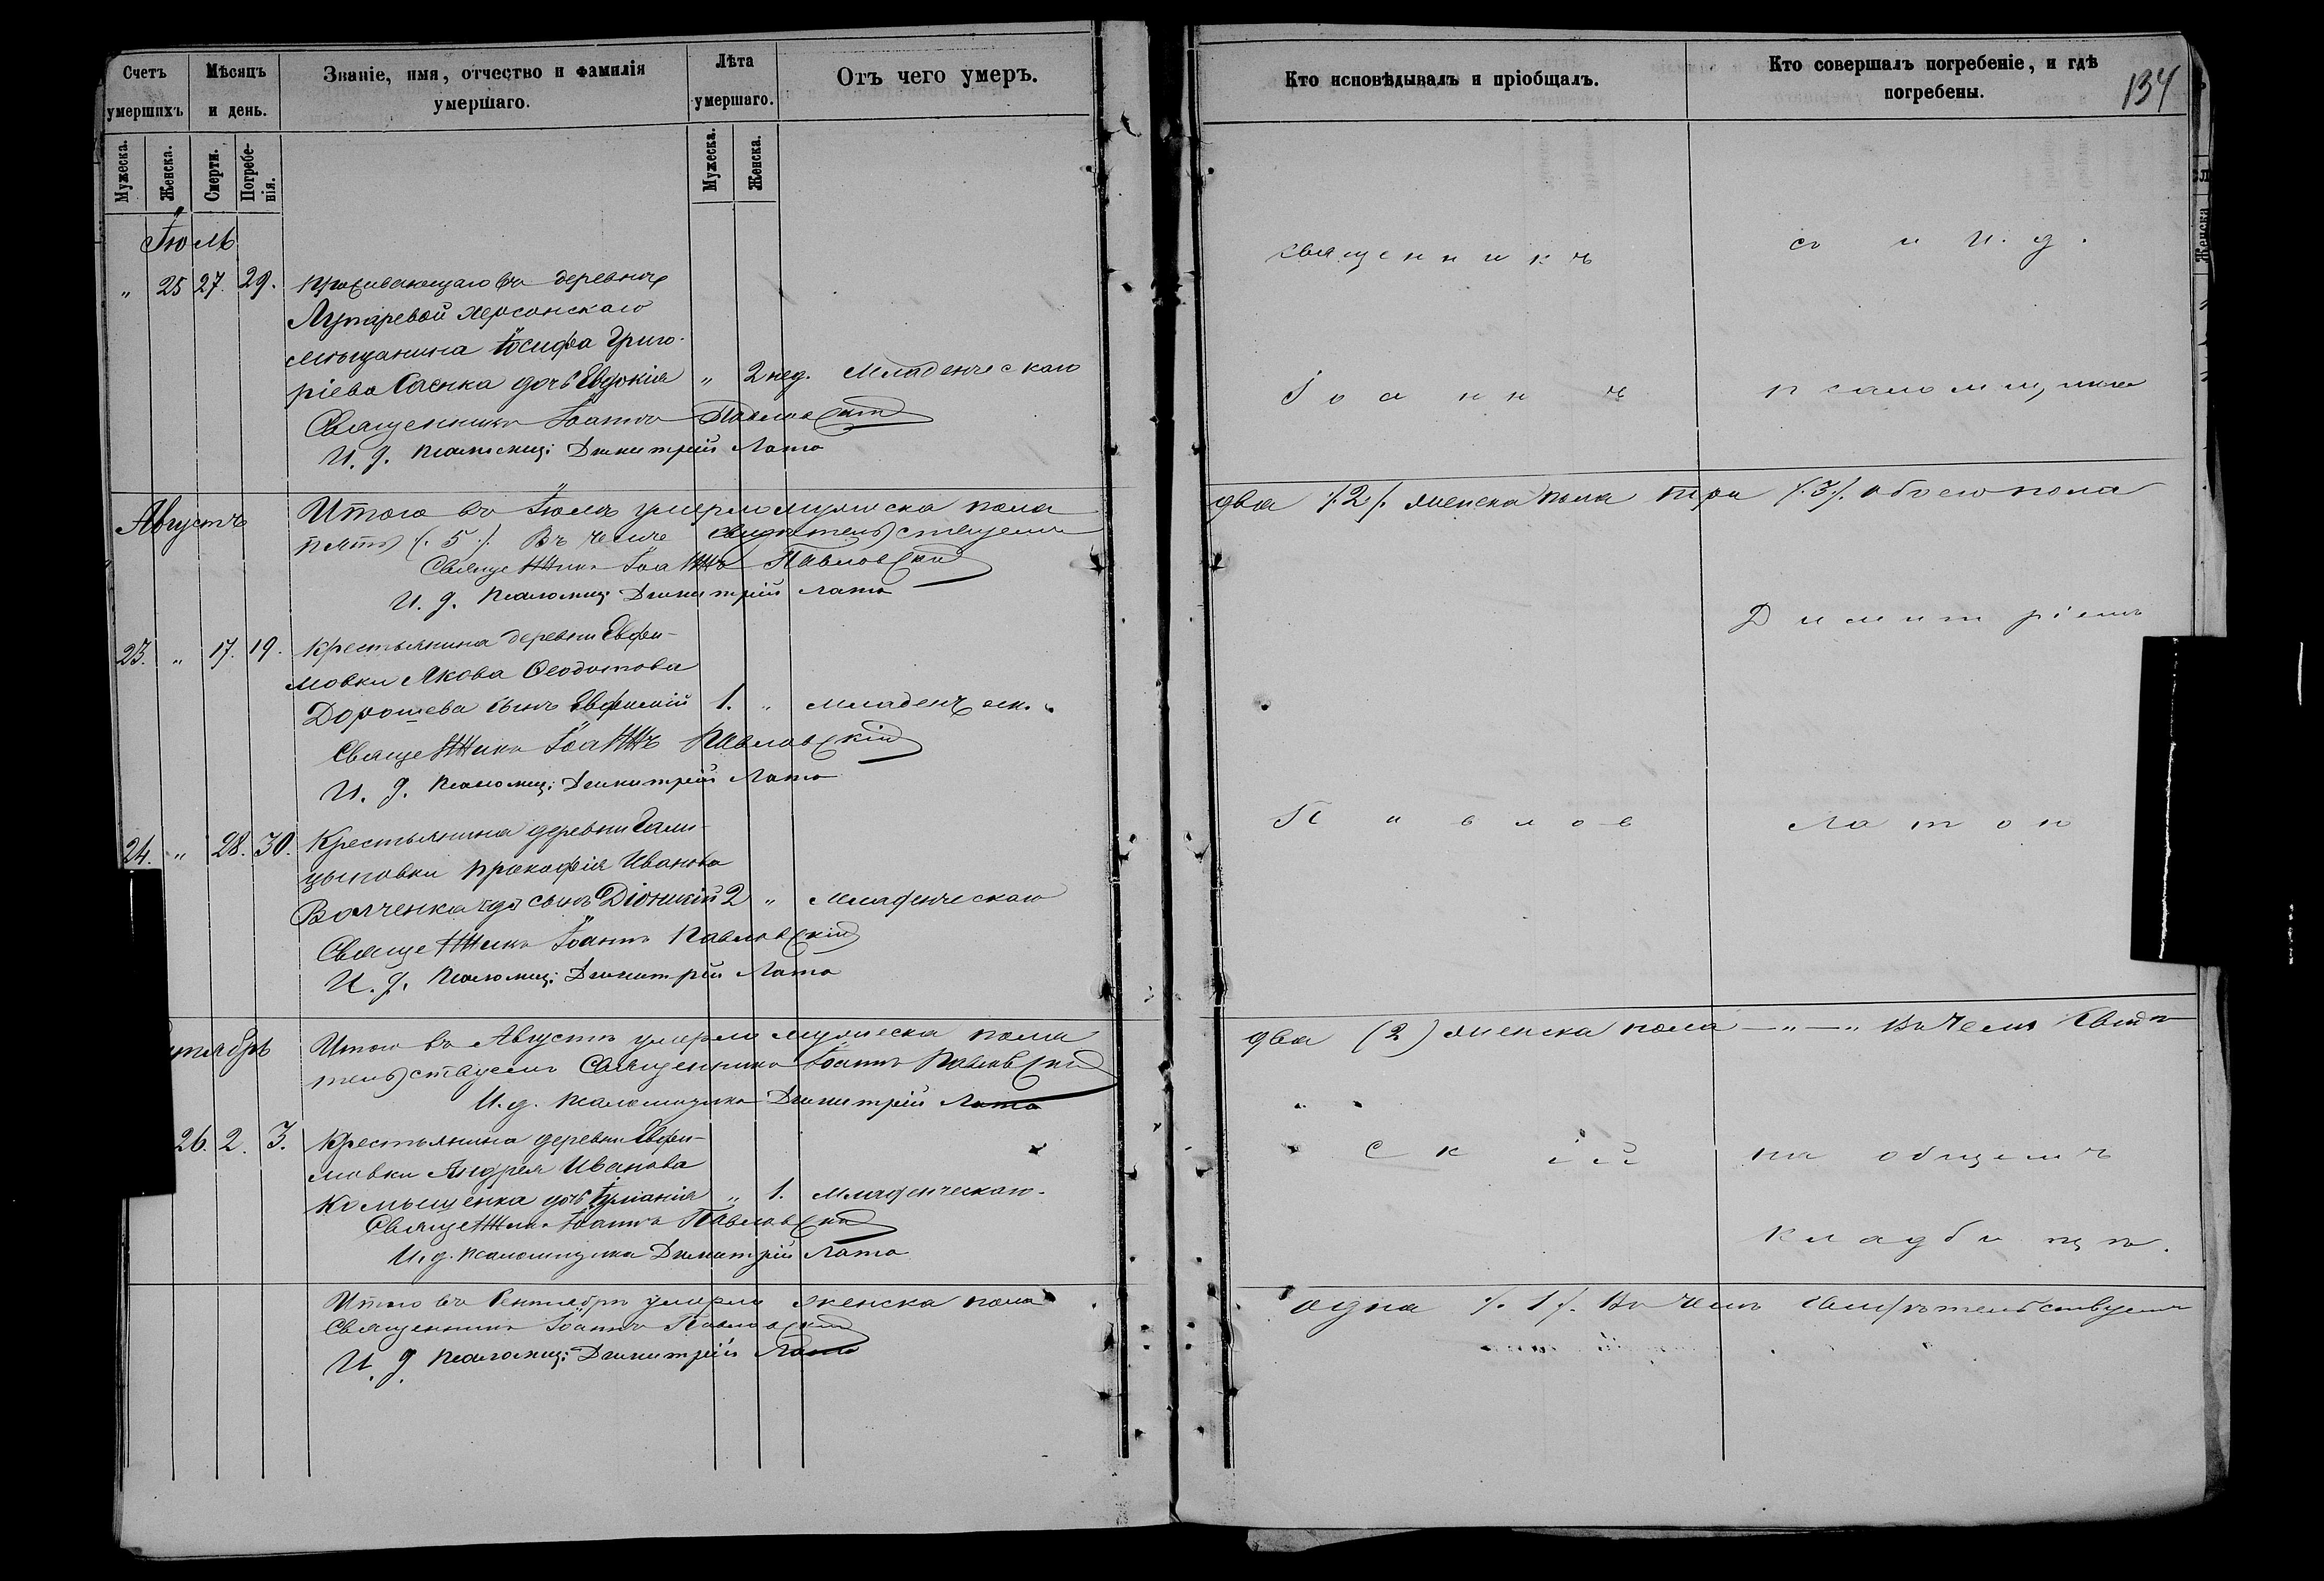 Счетъ умершихъ
Мѣсяцъ и день.
Званіе, имя, отчество и фамилія умершаго.
Лѣта умершаго.
Отъ чего умеръ.
Мужеска.
Женска.
Смерти.
Погребенія.
Мужеска.
Женска.
Іюль
" 25 27. 29. Проживающаго въ деревнѣ
Херсонскаго
мѣщанина Іосифа Григо-
ріева дочь Евдокія " 2 нед. Младенческаго
Священникъ Іоаннъ Павловскій
И. д. псаломщ: Димитрій Лато
Августъ
Итого въ Іюлѣ умерло мужеска пола
пять /. 5 /. Въ чемъ свидѣтельствуемъ
Священникъ Іоаннъ Павловскій
И. д. псаломщ: Димитрій Лато
23. " 17. 19. Крестьянина деревни Евфи-
мовки Якова Ѳеодотова
Дорошева сынъ Евфимій 1. " младенческ.
Священникъ Іоаннъ Павловскій
И. д. псаломщ: Димитрій Лато
24. " 28. 30. Крестьянина деревни Гали-
цыновки Прокофія Иванова
Волченка сынъ Діонисій 2 " Младенческаго
Священникъ Іоаннъ Павловскій
И. д. псаломщ: Димитрій Лато
тябрь
Итого въ Августѣ умерло мужеска пола
тельствуемъ Священникъ Іоаннъ Павловскій
И. д. псаломщика Димитрій Лато
26. 2. 3. Крестьянина деревни Евфи-
мовки Андрея Иванова
дочь Іуліанія " 1. Младенческаго.
Священникъ Іоаннъ Павловскій
И. д. псаломщика Димитрій Лато
Итого въ Сентябрѣ умерло женска пола
Священникъ Іоаннъ Павловскій
И. д. псаломщ: Димитрій Лато
Кто исповѣдывалъ и пріобщалъ.
Кто совершалъ погребеніе, и гдѣ погребены.
134
Женска
священникъ
съ и. д.
Іоаннъ
псаломщика
два /. 2 /. женска пола три /. 3 /. обоего пола
Димитріемъ
Павлов
Латою
два (2) женска пола — " — " Въ чемъ свидѣ-
скій
на общемъ
кладбищѣ.
одна /. 1 /. Въ чемъ свидѣтельствуемъ